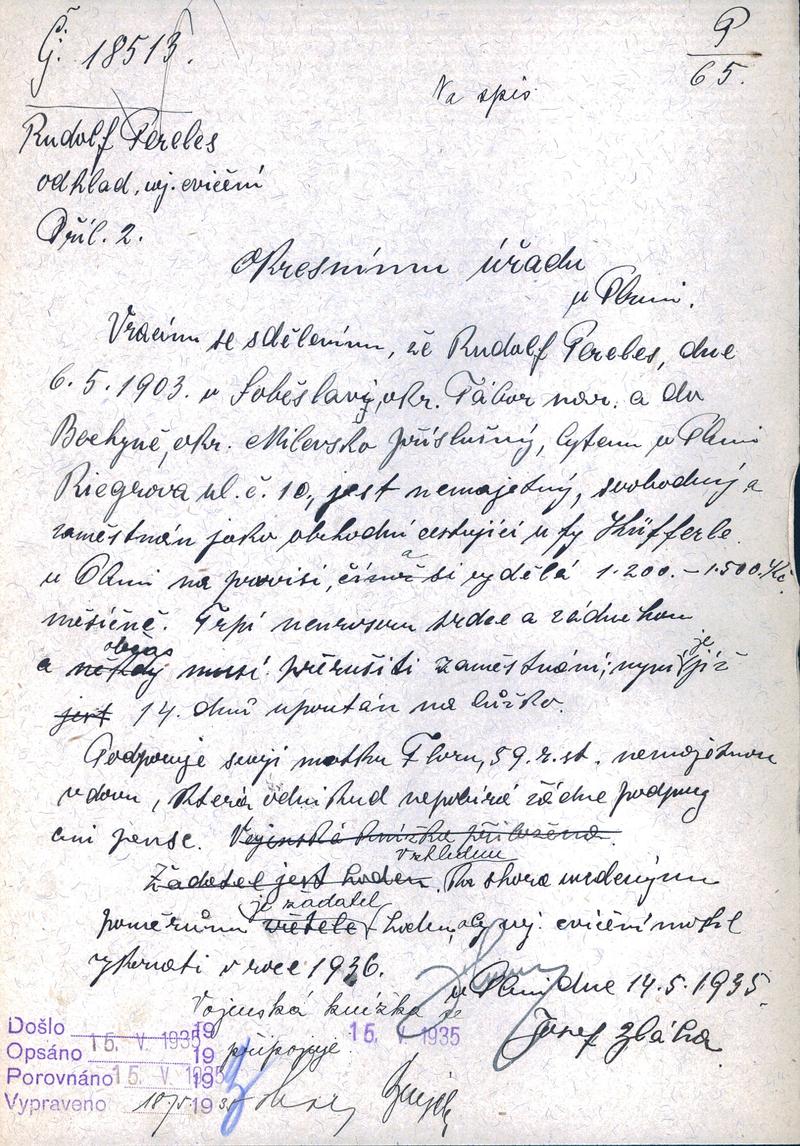 Č: 18513.
P
65.
Na spis
Rudolf Pereles
odklad. voj. cvičení
Příl. 2.
Okresnímu úřadu
v Plzni.
Vracím se sdělením, že Rudolf Pereles, dne
6. 5. 1903. v Soběslavi, okr. Tábor nar. a do
Bechyně, okr. Milevsko příslušný, bytem v Plzni
Riegrova ul. č. 10, jest nemajetný, svobodný a
zaměstnán jako obchodní cestující u fy Küfferle
v Plzni na provisi, čímž si vydělá 1.200.- 1.500.Kč.
měsíčně. Trpí neurosou srdce a
občas
a někdy musí přerušiti zaměstnání; nyní je již
jest 14. dní upoután na lůžko.
Podporuje svoji matku Floru, 59. r. st. nemajetnou
vdovu, která odnikud nepobírá žádné podpory
ani pense. Vojenská knížka přiložena.
vzhledem
Žadatel jest hoden. Ku shora uvedeným
je žadatel
poměrům hoden, aby voj. cvičení mohl
vykonati v roce 1936.
v Plzni dne 14. 5. 1935.
Vojenská knížka se
připojuje.
Josef
Došlo 19
Opsáno 15. V. 1935 19
Porovnáno 15. V. 1935 19
Vypraveno 19
15. V. 1935